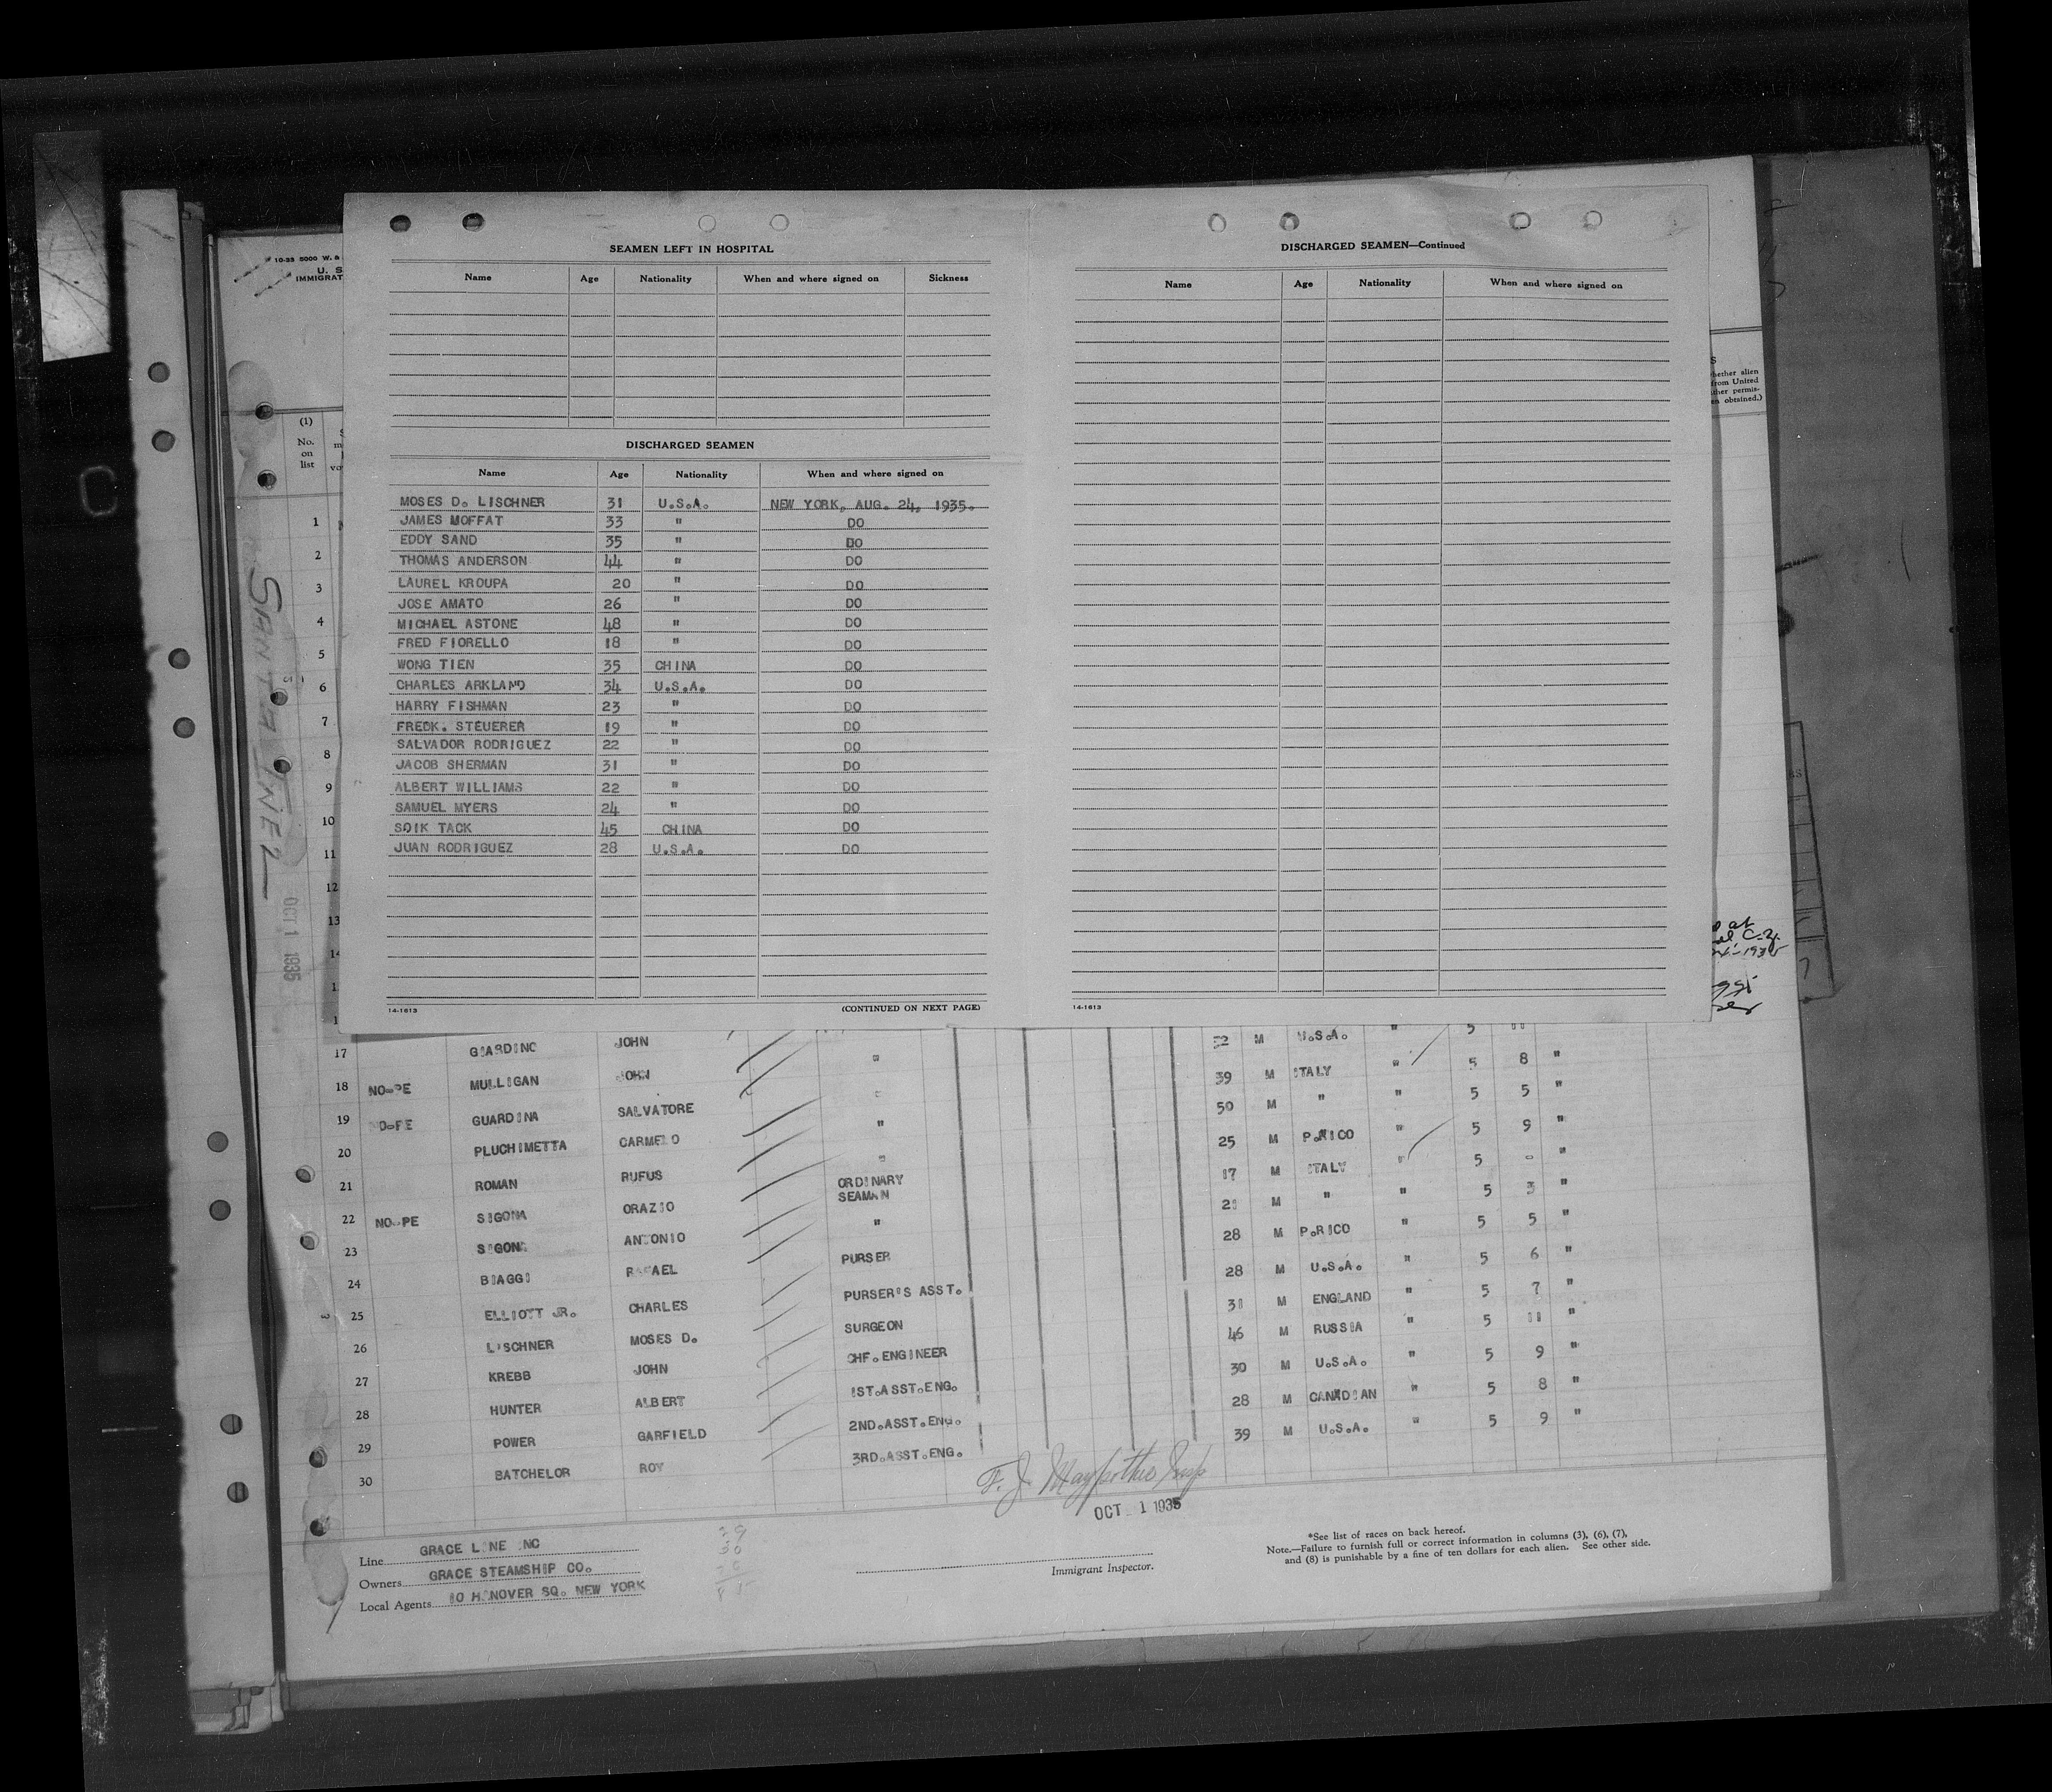 SEAMEN LEFT IN HOSPITAL
Name Age Nationality When and where signed on Sickness
DISCHARGED SEAMEN
Name Age Nationality When and where signed on
MOSES D. LISCHNER 31 U.S.A. NEW YORK, AUG. 24, 1935.
JAMES MOFFAT 33 " DO
EDDY SAND 35 " DO
THOMAS ANDERSON 44 " DO
LAUREL KROUPA 20 " DO
JOSE AMATO 26 " DO
MICHAEL ASTONE 48 " DO
FRED FIORELLO 18 " DO
WONG TIEN 35 CHINA DO
CHARLES ARKLAND 34 U.S.A. DO
HARRY FISHMAN 23 " DO
FREDK. STEUERER 19 " DO
SALVADOR RODRIGUEZ 22 " DO
JACOB SHERMAN 31 " DO
ALBERT WILLIAMS 22 " DO
SAMUEL MYERS 24 " DO
SOIK TACK 45 CHINA DO
JUAN RODRIGUEZ 28 U.S.A. DO
14-1613 (CONTINUED ON NEXT PAGE)
DISCHARGED SEAMEN—Continued
Name Age Nationality When and where signed on
14-1613
10-33 5000 W. &
U. S.
IMMIGRAT
(1)
No.
on
list
1
2
3
4
5
6
7
8
9
10
11
12
13
14
SANTA INEZ
OCT 1 1935
hether alien
from United
ther permis-
en obtained.)
at
C.Z.
U.S.A. " 5 11
17 GIARDINO JOHN " 52 M
18 NO-PE MULLIGAN JOHN " 39 M ITALY " 5 8 "
19 NO-PE GUARDINA SALVATORE " 50 M " " 5 5 "
20 PLUCHIMETTA CARMELO " 25 M P.RICO " 5 9 "
21 ROMAN RUFUS ORDINARY SEAMAN 17 M ITALY " 5 "
22 NO-PE SIGONA ORAZIO " 21 M " " 5 3 "
23 SIGONA ANTONIO 28 M P.RICO " 5 5 "
24 BIAGGI RAFAEL PURSER 28 M U.S.A. " 5 6 "
25 ELLIOTT JR. CHARLES PURSER'S ASST. 31 M ENGLAND " 5 7 "
26 LISCHNER MOSES D. SURGEON 46 M RUSSIA " 5 11 "
27 KREBB JOHN CHF.ENGINEER 30 M U.S.A. " 5 9 "
28 HUNTER ALBERT 1ST.ASST.ENG. 28 M CANADIAN " 5 8 "
29 POWER GARFIELD 2ND.ASST.ENG. 39 M U.S.A. " 5 9 "
30 BATCHELOR ROY 3RD.ASST.ENG.
F. J.
OCT 1 1935
Line GRACE LINE INC
Owners GRACE STEAMSHIP CO.
Local Agents 10 HANOVER SQ. NEW YORK
Immigrant Inspector.
*See list of races on back hereof.
Note.—Failure to furnish full or correct information in columns (3), (6), (7),
and (8) is punishable by a fine of ten dollars for each alien. See other side.